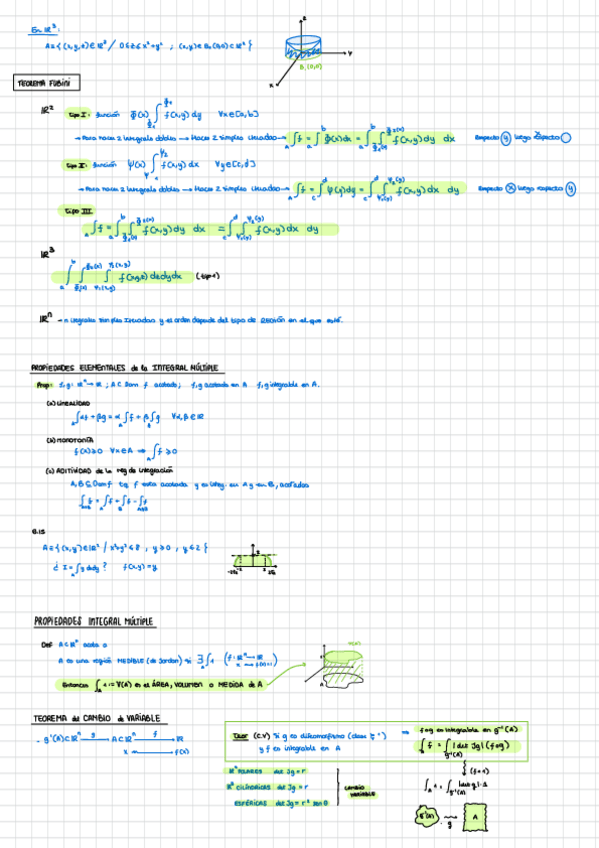 En ℝ³:
A={(x,y,z)∈ℝ³/ 0≤z≤x²+y² ; (x,y)∈B₁(0,0)⊂ℝ²}
z
y
x
B₁(0,0)
TEOREMA FUBINI
ℝ²
tipo I: función Φ(x) ∫ f(x,y) dy ∀x∈[a,b]
→ Para hacer 2 integrales dobles → Hacer 2 simples iteradas → ∫_A f = ∫_a^b Φ(x)dx = ∫_a^b ∫ f(x,y) dy dx respecto y luego respecto
función Ψ(y) ∫ f(x,y) dx ∀y∈[c,d]
→ Para hacer 2 integrales dobles → Hacer 2 simples iteradas → ∫_A f = ∫_c^d Ψ(y)dy = ∫_c^d ∫ f(x,y) dx dy respecto x luego respecto y
tipo III
∫_A f = ∫_a^b ∫ f(x,y) dy dx = ∫_c^d ∫ f(x,y) dx dy
ℝ³
∫_a^b ∫ ∫ f(x,y,z) dz dy dx (tipo 1)
ℝⁿ – n integrales simples iteradas y el orden depende del tipo de REGIÓN en el que esté.
PROPIEDADES ELEMENTALES de la INTEGRAL MÚLTIPLE
Prop: f,g: ℝⁿ→ℝ ; A⊂Dom f acotado; f,g acotada en A f,g integrable en A.
(a) LINEALIDAD
∫_A αf+βg = α∫_A f + β∫_A g ∀α,β∈ℝ
(b) MONOTONÍA
f(x)≥0 ∀x∈A ⇒ ∫_A f ≥0
(c) ADITIVIDAD de la región de integración
A,B⊆Dom f tq f está acotada y es integ. en A y en B, acotados
∫_{A∪B} f = ∫_A f + ∫_B f - ∫_{A∩B} f
A={(x,y)∈ℝ²/ x²+y²≤8 , y≥0 , y≤2}
¿ I=∫_A y dxdy? f(x,y)=y
PROPIEDADES INTEGRAL MÚLTIPLE
Def A⊂ℝⁿ
A es una región MEDIBLE (de Jordan) si ∃∫_A 1 (f: ℝⁿ→ℝ
x→f(x)=1)
Entonces ∫_A 1 := V(A) es el ÁREA, VOLUMEN o MEDIDA de A
A
TEOREMA del CAMBIO de VARIABLE
- g⁻¹(A)⊂ℝⁿ —g→ A⊂ℝⁿ —f→ ℝ
x → f(x)
Teor (C.V) Si g es difeomorfismo (clase ζ¹) ⇒ f∘g es integrable en g⁻¹(A)
y f es integrable en A ∫_A f = ∫_{g⁻¹(A)} |det Jg| (f∘g)
(f=1)
ℝ² POLARES det Jg=r
ℝ³ CILÍNDRICAS det Jg=r
ESFÉRICAS det Jg=r² sen θ
CAMBIO
VARIABLE
∫_A 1 = ∫_{g⁻¹(A)} |det Jg|·1
g⁻¹(A) g A